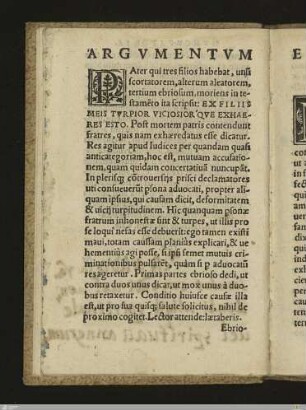 ARGVMENTVM
PAter qui tres filios habebat, unũ
scortatorem, alterum aleatorem,
tertium ebriosum, moriens in te-
stamẽto ita scripsit: EX FILIIS
MEIS TVRPIOR VICIOSIOR'QVE EXHAE-
RES ESTO. Post mortem patris contendunt
fratres, quis nam exhæredatus esse dicatur.
Res agitur apud Iudices per quandam quasi
anticategoriam, hoc est, mutuam accusatio-
nem, quam quidam concertatiuã nuncupãt.
In plerisq; cõtrouersijs prisci declamatores
uti consueuerũt psona aduocati, propter ali-
quam ipsius, qui causam dicit, deformitatem
& uicij turpitudinem. Hic quanquam psonæ
fratrum inhonestæ sint & turpes, ut illis pro
se loqui nefas esse debuerit: ego tamen existi
maui, totam caussam planiùs explicari, & ue
hementius agi posse, si ipsi semet mutuis cri-
minationibus pulsarẽt, quàm si p aduocatũ
res ageretur. Primas partes ebrioso dedi, ut
contra duos unus dicat, ut mox unus à duo-
bus retaxetur. Conditio huiusce causæ illa
est, ut pro sua quisq; salute solicitus, nihil de
proximo cogitet. Lector attende: lætaberis.
Ebrio-